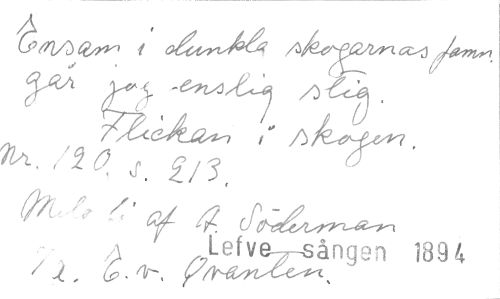 Ensam i dunkla skogarnas famn.
går jag enslig stig.
Flickan i skogen.
Nr. 120. s. 213.
Melodi af A. Söderman
Lefve sången 1894
E. v. Qvanten.